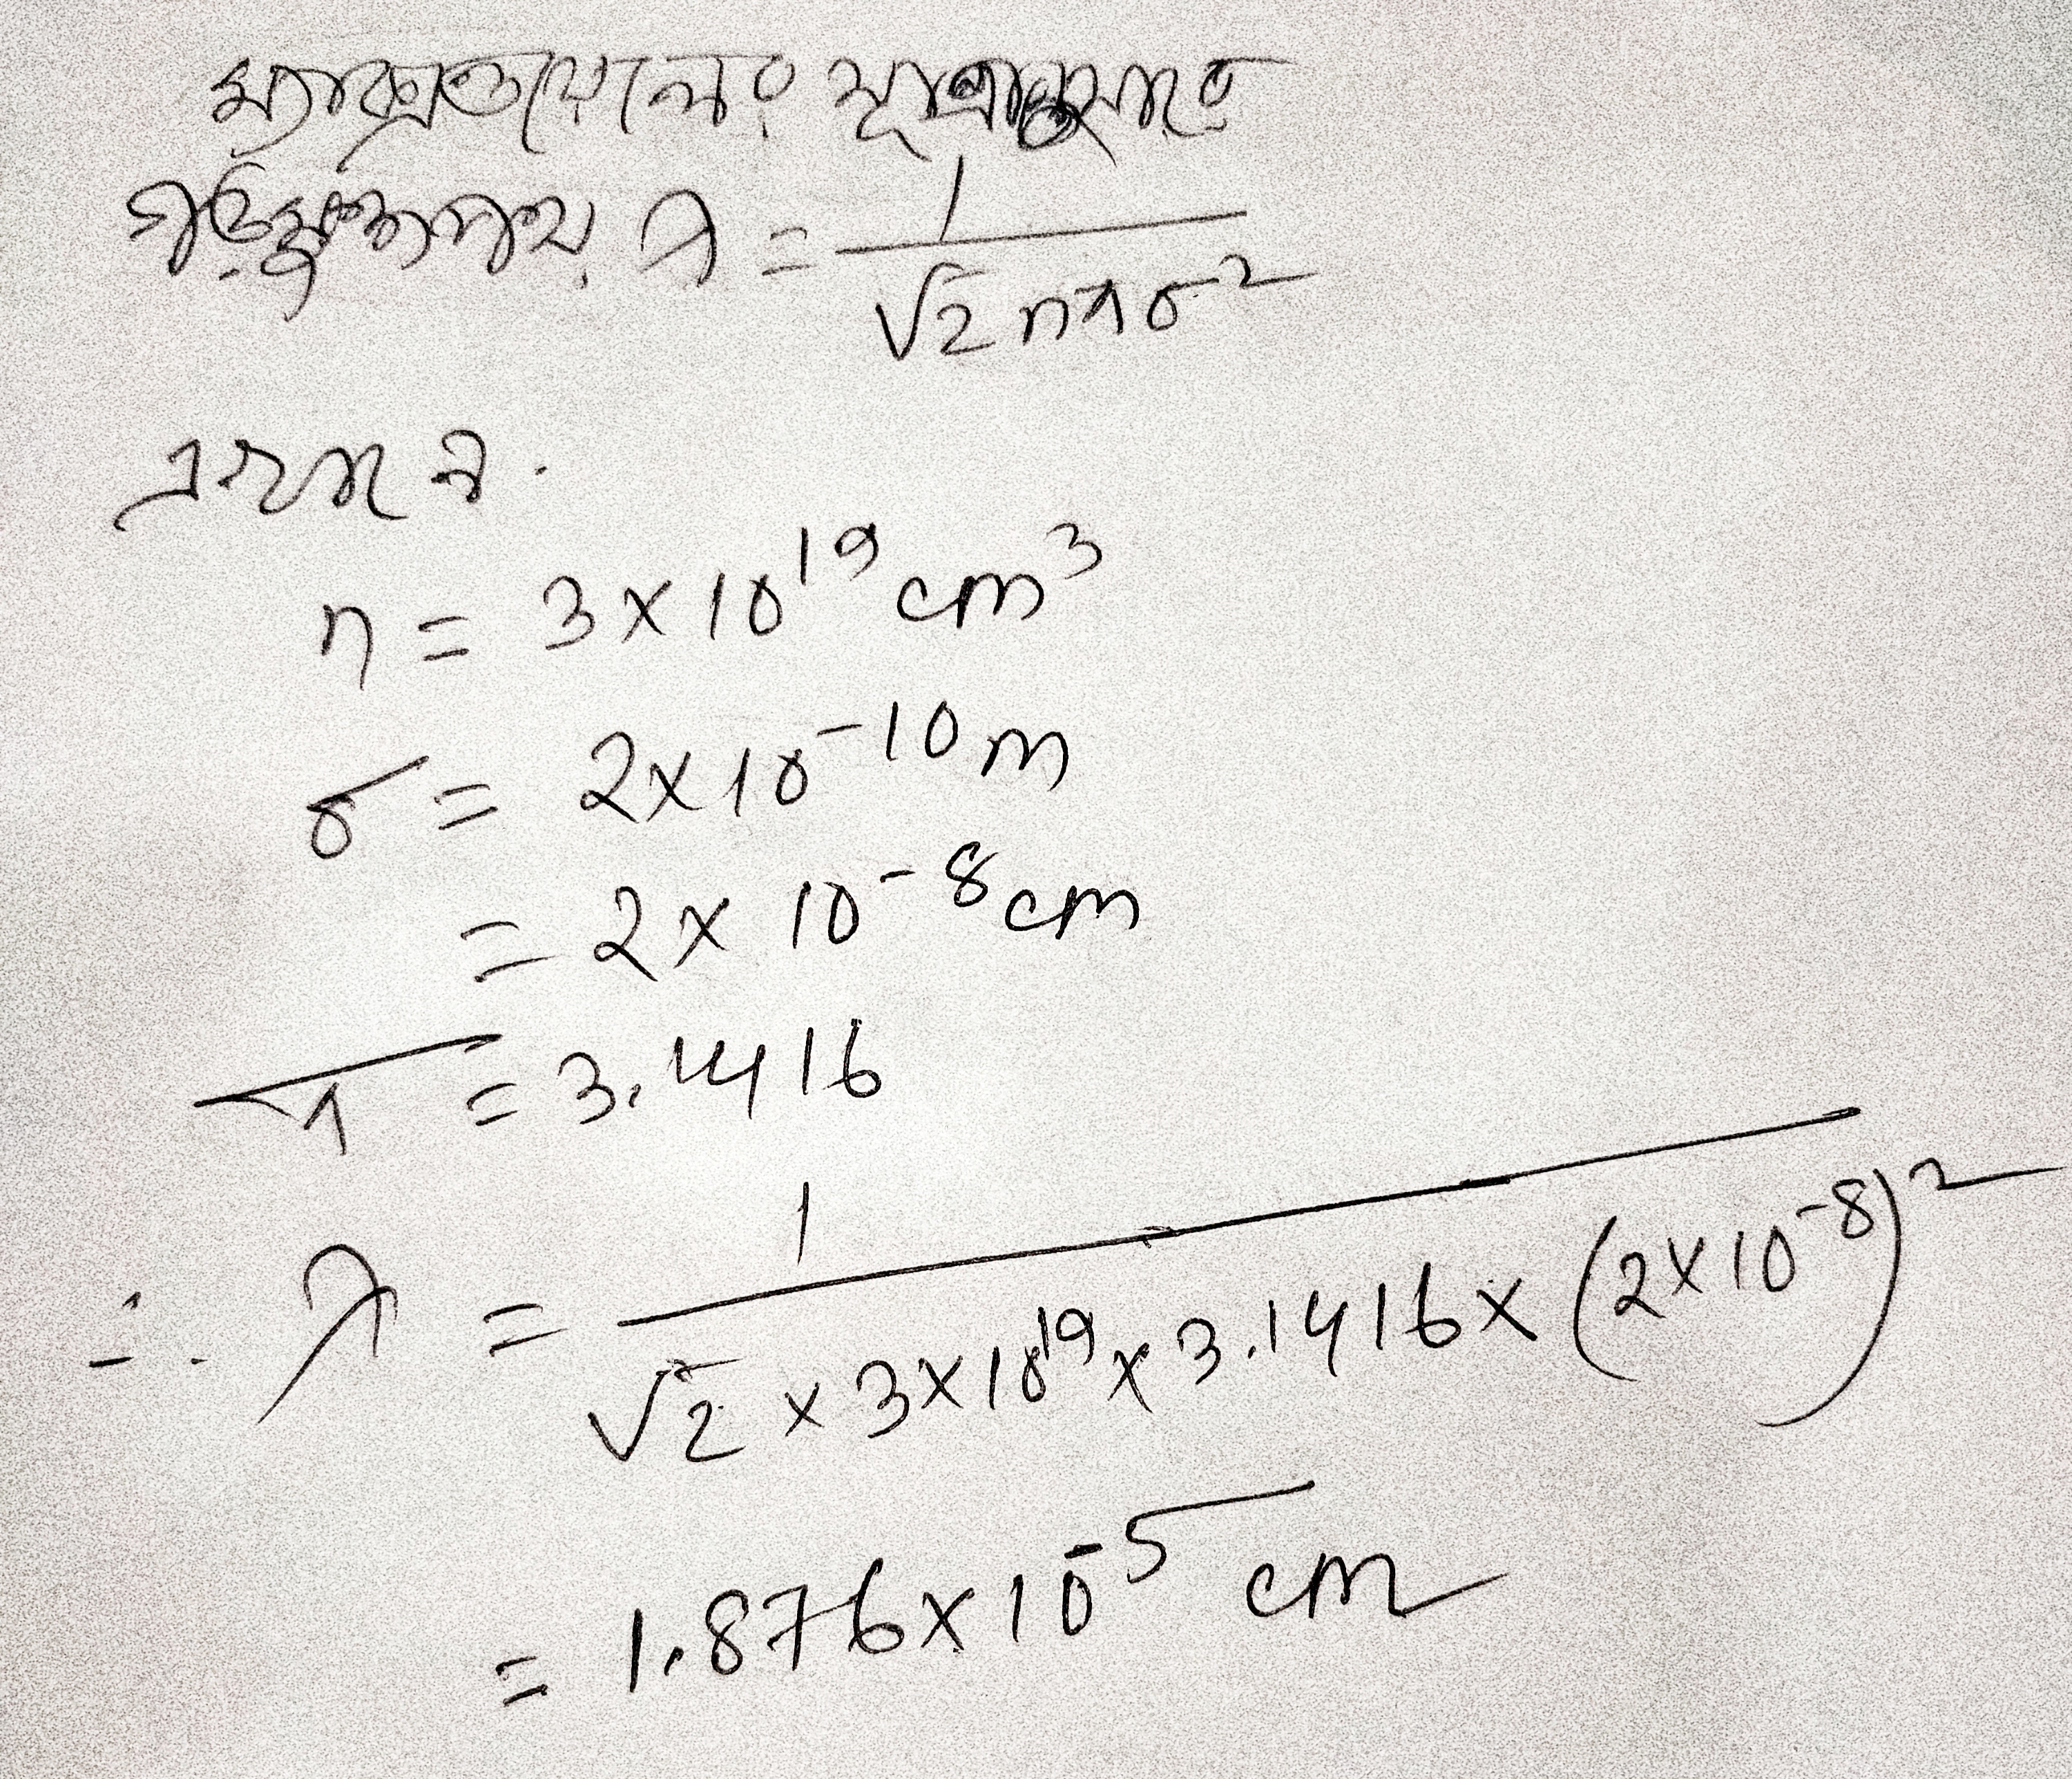 ম্যাক্সওয়েলের সূত্রানুসারে
গড়মুক্তপথ, λ = 1 / √2 nπσ²
এখানে.
n = 3×10¹⁹ cm³
σ = 2×10⁻¹⁰ m
= 2× 10⁻⁸ cm
π = 3.1416
∴ λ = 1 / √2 × 3×10¹⁹ × 3.1416 × (2×10⁻⁸)²
= 1.876×10⁻⁵ cm